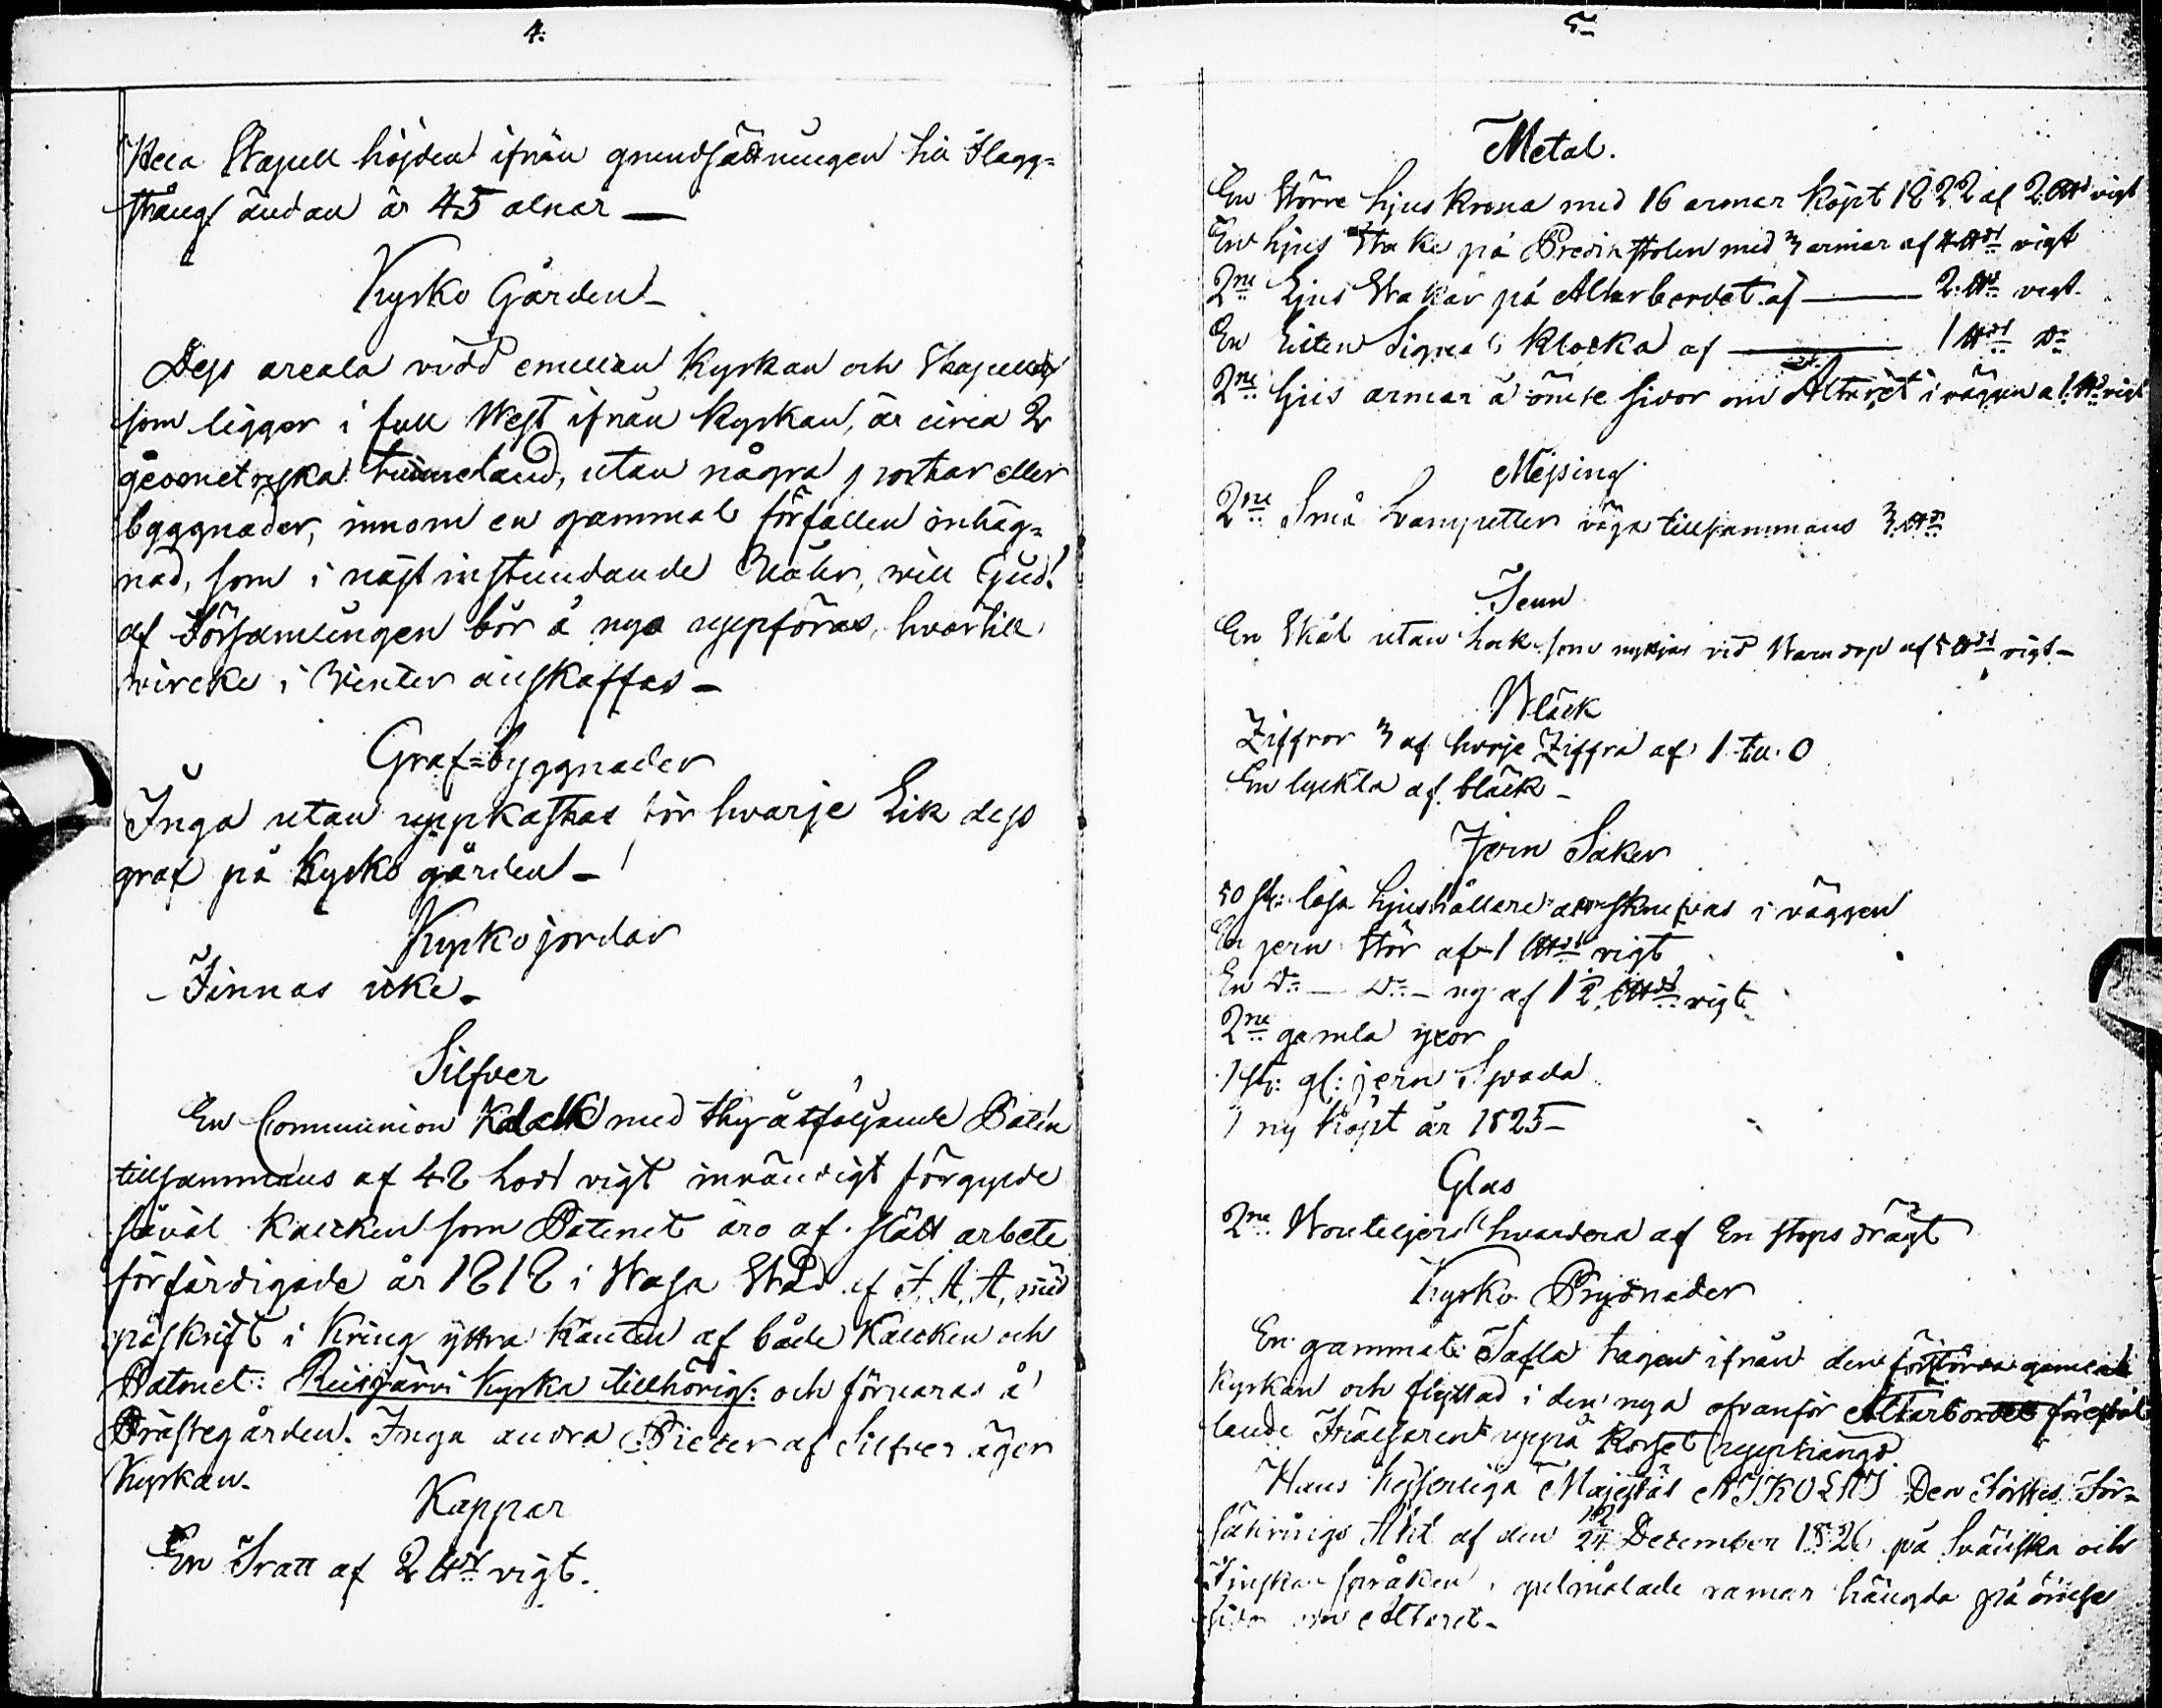 4.
Hela Stapell höjden ifrån grundsättningen till Flagg=
stångs ändan är 45 alnar —
Kyrko Gården —
Dess areala vidd emellan Kyrkan och Stapeln
som ligger i full West ifrån Kyrkan, är circa 2
geometryska tunneland, utan några portar eller
byggnader, innom en gammal förfallen inhäg=
nad, som i näst instundande Wåhr, will Gud!
af Församlingen bör å nyo uppföras, hvartill
wircke i Winter anskaffas —
Graf=byggnader
Inga utan uppkastas för hvarje Lik dess
graf på Kyrko gården —
Kyrkojordar
Finnas icke —
Silfver
En Communion Kalk med thy åtföljande Patén
tillsammans af 48 Lod vigt invändigt förgylde
såväl Kalcken som Patenet äro af slätt arbete
förfärdigade år 1818 i Wasa Stad af F. A. A, med
påskrift i Kring yttra Kanten af både Kalcken och
Patenet: Reisjärvi Kyrka tillhörig: och förvaras å
Prästegården. Inga andra Piecer af Silfver äger
Kyrkan.
Kappar
En Tratt af 2 ℔ vigt.
5
Metal.
En större Ljus Krona med 16 armar Köpt 1822 af 2 L℔ vigt
En Ljus Stake på Predikstolen med 3 armar af 4 ℔ vigt
2ne Ljus Stakar på Altarbordet af — 2 ℔ vigt
En Liten Signal Klocka af — 1 ℔ Do
2ne Ljus armar å ömse sidor om Altaret i väggen a 1 ℔ vigt
Messing
2ne Små Lampetter väga tillsammans 3 ℔
Tenn
En Skål utan lock som nyttjas vid Barn dop af 5 ℔ vigt —
Bläck
Ziffror 3 af hvarje Ziffra af 1 till 0
En lyckta af bläck —
Jern Saker
50 st: lösa Ljushållare som skrufvas i väggen
En jern Stör af 1 L℔ vigt
En Do — Do — ny af 1 1/2 L℔ vigt
2ne gamla yxor
1 st: gl: jern Spada
1 ny Köpt år 1825 —
Glas
2ne Bouteljer hvardera af En stops drägt
Kyrko Prydnader
En gammal Tafla tagen ifrån den förstörda gamla
Kyrkan och flyttad i den nya ofvanför Altarbordet förestäl
lande Frälsaren uppå Korset upphängd.
Hans Kejserliga Majestät NIKOLAI Den Förstes För=
säkrings Akt af den 12/24 December 1826 på Svänska och
Finska språken i gulmålade ramar hängda på ömse
sidor om Altaret —